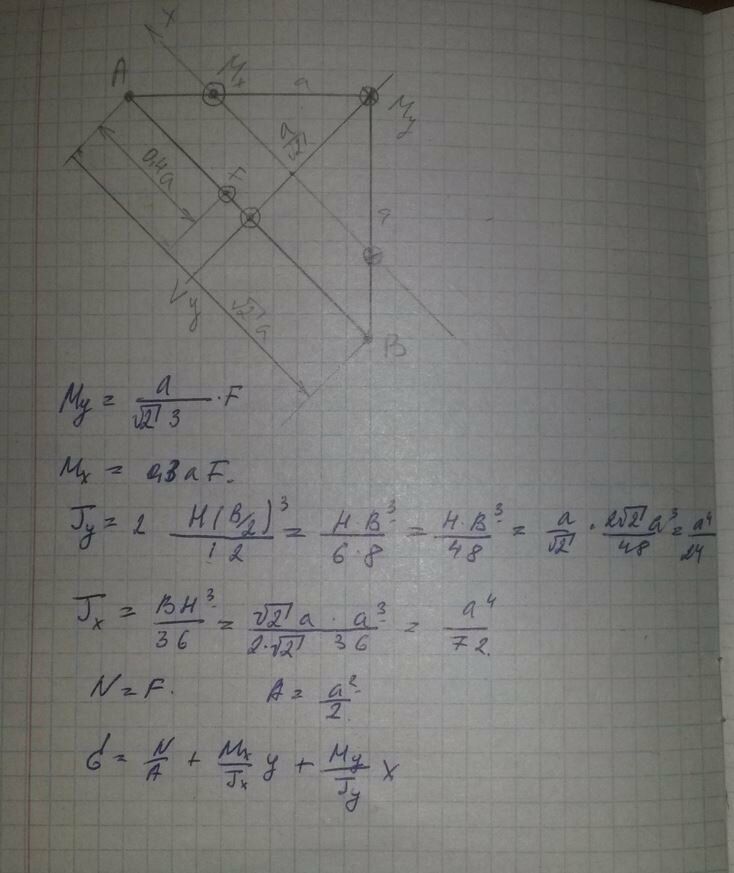 x
A
Mx
a
My
a/√2
0,4a
F
a
y
√2 a
B
My = a/(√2 3) · F
Mx = 0,3 a F.
Jy = 2 H(B/2)³/12 = H·B³/(6·8) = H·B³/48 = a/√2 · 2√2 a³/48 = a⁴/24
Jx = BH³/36 = (√2 a · a³)/(2·√2 36) = a⁴/72.
N = F. A = a²/2.
σ = N/A + Mx/Jx y + My/Jy x